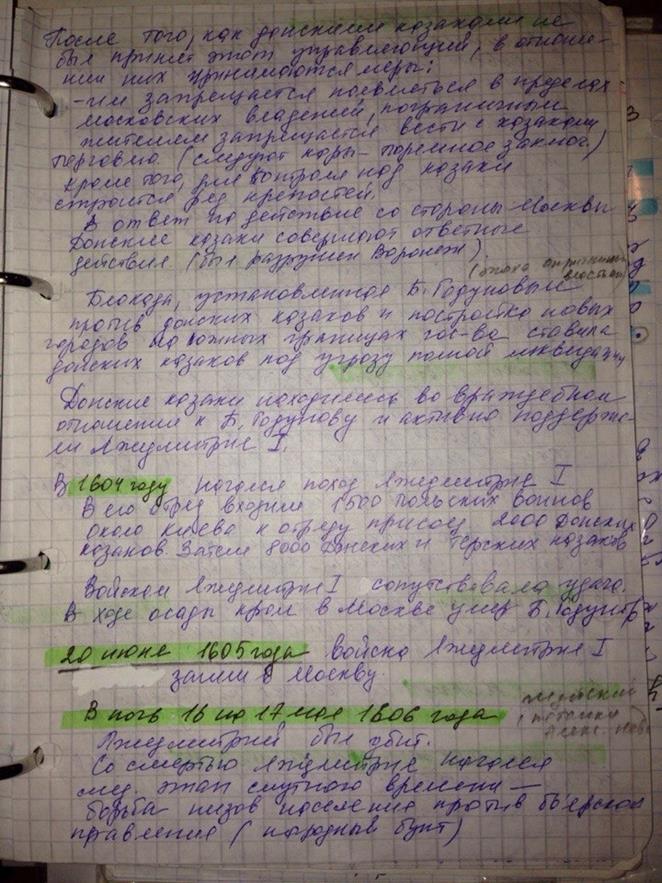 После того, как донскими казаками не
был принят этот управляющий, в отноше-
нии них принимаются меры:
- им запрещается появляться в пределах
московских владений, пограничным
жителям запрещается вести с казаками
торговлю. (следуют кары-
Кроме того, для контроля над казаки
строится ряд крепостей.
В ответ на действие со стороны Москвы
Донские казаки совершают ответные
действия. (был разрушен Воронеж)
Блокада, установленная Б. Годуновым
против донских казаков и постройка новых
городов на южных границах гос-ва ставила
донских казаков под угрозу полной ликвидации
Донские казаки находились во враждебном
отношении к Б. Годунову и активно поддержа-
ли Лжедмитрия I.
В 1604 году начался поход Лжедмитрия I
В его отряд входили 1500 польских воинов
около Киева к отряду присоед. 2000 Донских
казаков Затем 8000 Донских и Терских казаков
Войскам Лжедмитрия I сопутствовала удача.
В ходе осады Кром в Москве умер Б. Годунов
20 июня 1605 года войска Лжедмитрия I
зашли в Москву.
В ночь 16 на 17 мая 1606 года
Лжедмитрий был убит.
Со смертью Лжедмитрия начался
след. этап смутного времени —
борьба низов населения против боярского
правления (народный бунт)